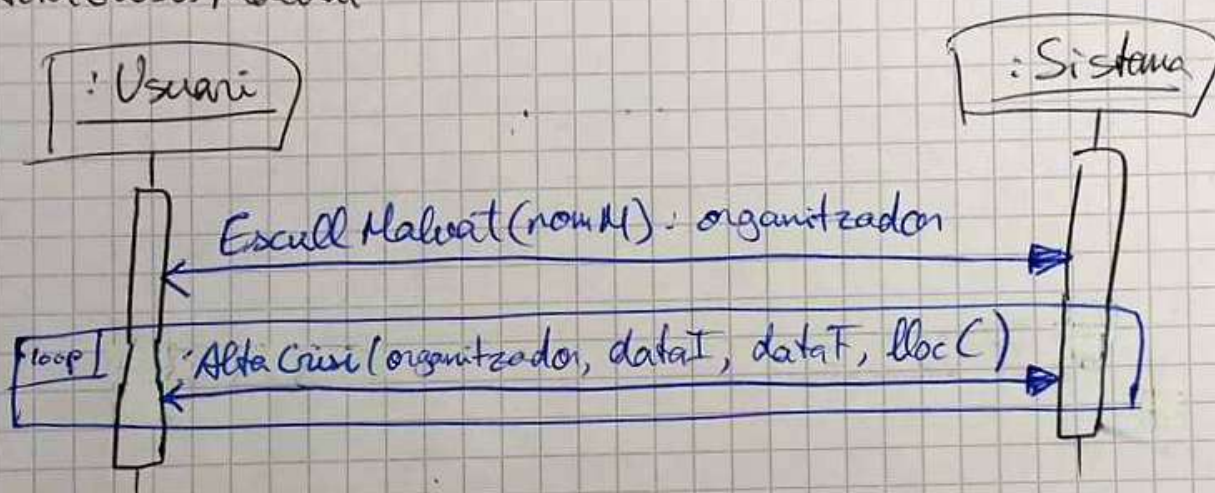 : Usuari
: Sistema
Escull Malvat (nomM) : organitzador
loop
AltaCrisi (organitzador, dataI, dataF, llocC)